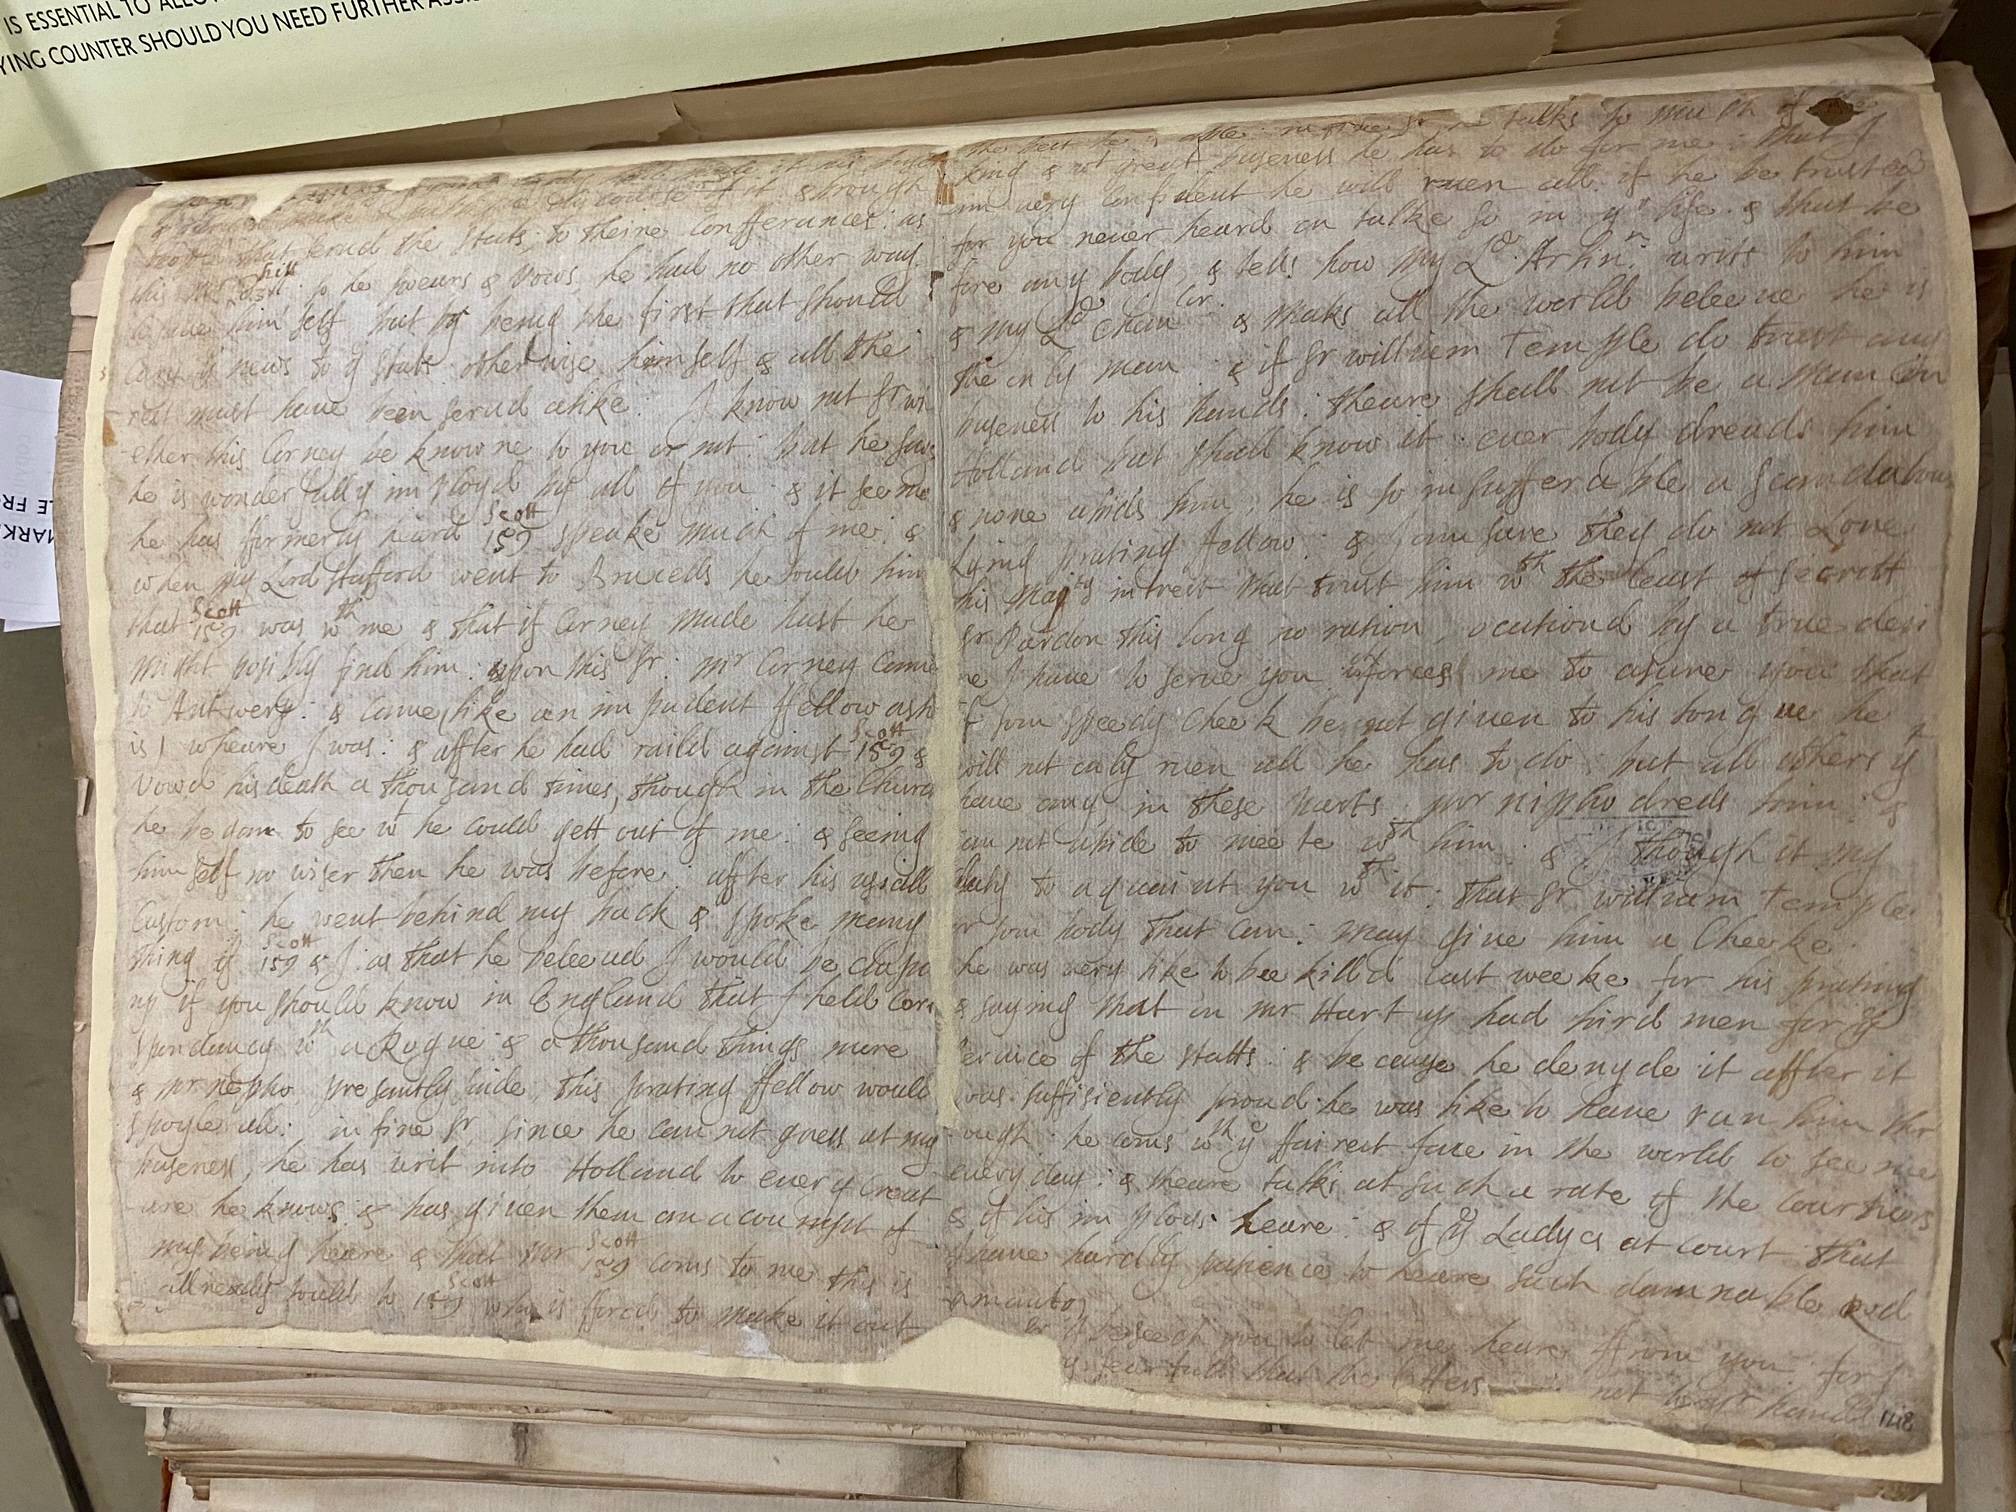 IS ESSENTIAL TO
YING COUNTER SHOULD YOU NEED FURTHER
discourse of it through
that serud the stats, to theire confferances: as
this so he swears & vows he had no other way
him self but by being the first that should
Cary ye news to ye stats otherwise himself & all the
rest must have been serud alike. I know not Sr wh
ether this Corney be knowne to you or not: but he says
he is wonderfully imployd by all of you & it seems
he has formerly heard 159 speake much of me: &
Scott
when my Lord Stafford went to Brucells he tould him
that 159 was wth me & that if Corney made hast he
Scott
might posibly find him: upon this Sr: mr Corney came
to Antwerp: & came, like an impudent ffellow ash
is, wheare I was: & after he had raild against 159 &
Scott
vowd his death a thousand times, though in the Church
he began to see wt he could gett out of me: & seeing
him self no wiser then he was before: affter his usiall
Custom: he went behind my back & spoke many
thing of 159 & I. as that he beleeud I would be
Scott
ng if you should know in England that I held Cors
spondancy wth a Rogue & a thousand things more
& mr nipho presantly said, this prating ffellow would
spoyle all: in fine Sr, since he can not guess at my
buseness, he has writ into Holland to every Creat
ure he knows & has given them an acounpt of
my being heare & that mr 159 coms to me this is
Scott
allready tould to 159 who is fforcd to make it out
Scott
the best he is able: talks so much of the
king & wt great buseness he has to do for me: that I
am very confident he will ruen all if he be trusted
for you never heard on talke so in yr life & that be
fore any body, & tells how my Ld Arlinn: writs to him
& my Ld Chan & maks all the world beleeue he is
the only man & if Sr william Temple do trust any
buseness to his hands: theare shall not be a man in
Holland but shall know it: ever body dreads him
& none abids him, he is so insufferable a scandalous
Lying prating ffellow: & I am sure they do not Loue
his Maj intrest that trust him wth the least of secrett
Sr Pardon this long noration, ocationd by a true desi
re I haue to serue you inforces me to asure you that
if som speedy Check be not given to his tongue he
will not only ruen all he has to do: but all others yt
haue any, in these parts. mr nipho dreds him: &
can not abide to meete wth him: & I though it my
duty to aquaint you wth it: that Sr william Temple
or som body that can: may give him a Cheeke.
he was very like to bee killd last weeke for his prating
& saying that on mr Hartup had hird men for ye
seruice of the statts: & be cause he denyde it affter it
was suffisiently proud he was like to haue run him thr
ough: he coms wth ye ffairest face in the world to see me
every day: & theare talks at such a rate of the Courtiers
& of his imploys heare: & of ye Ladys at Court that
I haue hardly patience to heare such damnable Rod
amantos
Sr I beseech you to let me heare ffrom you: for I
fearfull that the letters not to yr hands
148